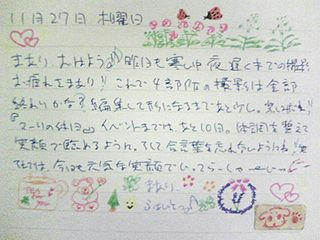 11月27日 木曜日
まあり、おはよう♪昨日も寒い中 夜遅くまでの撮影
お疲れさまあり!! これで4部作の撮影は全部
終わりかな? 編集して形になるまであと少し。楽しみだね!!
『まありの休日』イベントまでは、あと10日。体調を整えて
笑顔で臨めるように。そして合言葉を忘れないようにね!!
それでは、今日も元気な笑顔でいってらっしゃーい
まあり